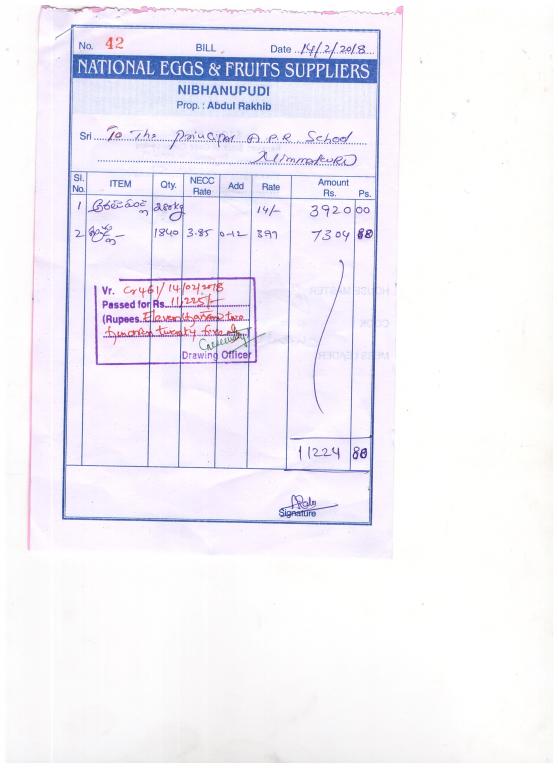 No. 42 BILL Date 14/2/2018
NATIONAL EGGS & FRUITS SUPPLIERS
NIBHANUPUDI
Prop. : Abdul Rakhib
Sri To The principal A.P.R School
Sl. No. ITEM Qty. NECC Rate Add Rate Amount Rs. Ps.
1 280kg 14/- 3920 00
2 1840 3.85 0-12 397 7304 80
Vr. Cr461/14/02/2018
Passed for Rs. 11,225/-
(Rupees Eleven thousand two
hundred twenty five only
Drawing Officer
11224 80
Signature